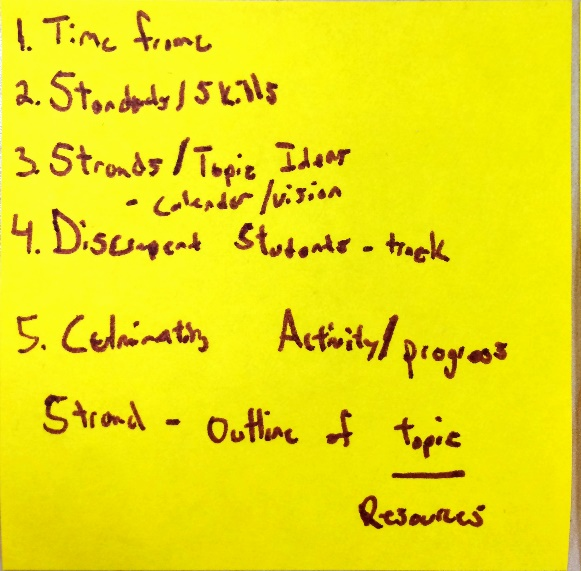 1. Time frame
2. Standards/Skills
3. Strands/Topic Ideas
- Calendar/vision
4. Students - track
5. Culminating Activity/progress
Strand - Outline of topic
Resources